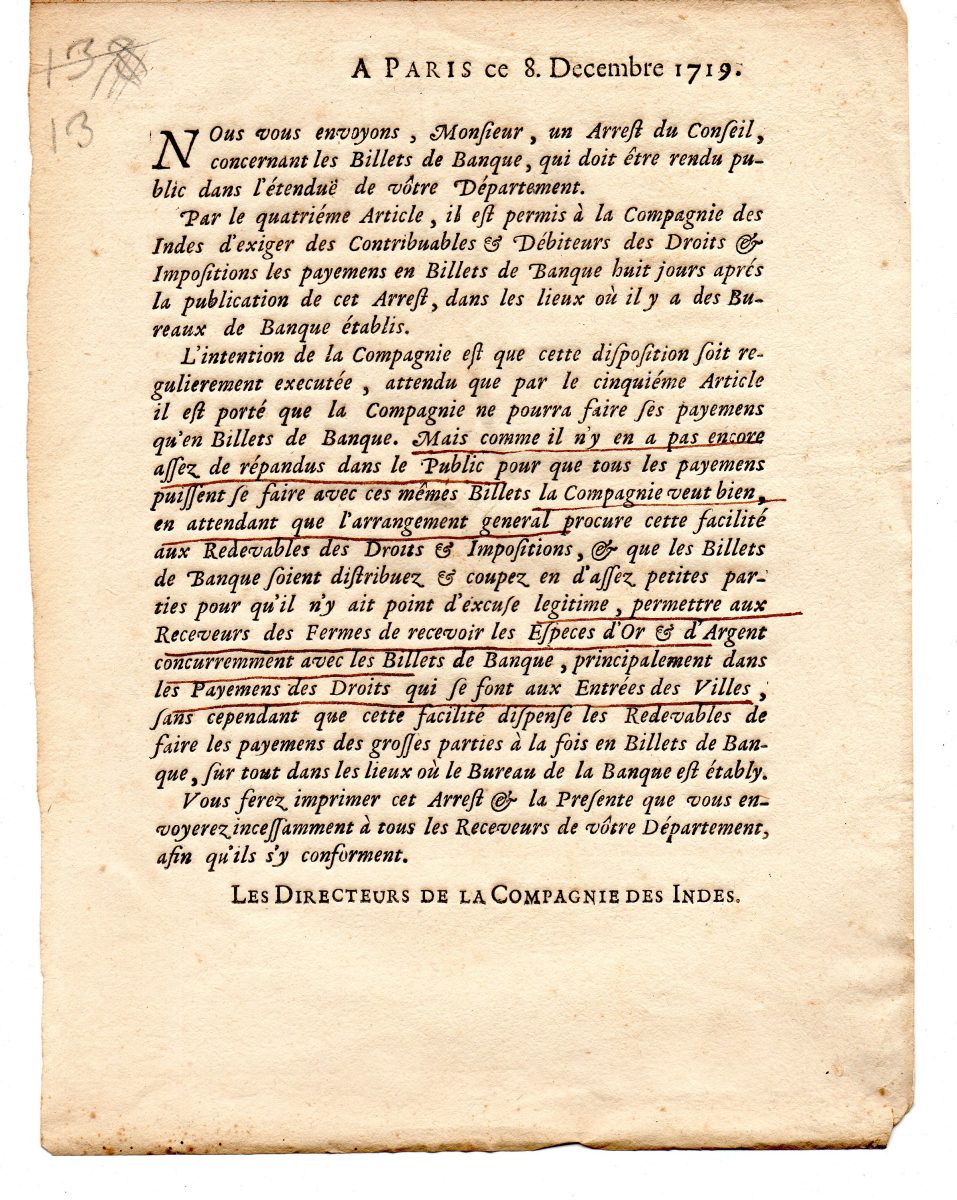 138
13
A PARIS ce 8. Decembre 1719.
NOus vous envoyons, Monſieur, un Arreſt du Conſeil,
concernant les Billets de Banque, qui doit être rendu pu-
blic dans l'étenduë de vôtre Département.
Par le quatriéme Article, il eſt permis à la Compagnie des
Indes d'exiger des Contribuables & Débiteurs des Droits &
Impoſitions les payemens en Billets de Banque huit jours aprés
la publication de cet Arreſt, dans les lieux où il y a des Bu-
reaux de Banque établis.
L'intention de la Compagnie eſt que cette diſpoſition ſoit re-
gulierement executée, attendu que par le cinquiéme Article
il eſt porté que la Compagnie ne pourra faire ſes payemens
qu'en Billets de Banque. Mais comme il n'y en a pas encore
aſſez de répandus dans le Public pour que tous les payemens
puiſſent ſe faire avec ces mêmes Billets la Compagnie veut bien,
en attendant que l'arrangement general procure cette facilité
aux Redevables des Droits & Impoſitions, & que les Billets
de Banque ſoient diſtribuez & coupez en d'aſſez petites par-
ties pour qu'il n'y ait point d'excuſe legitime, permettre aux
Receveurs des Fermes de recevoir les Eſpeces d'Or & d'Argent
concurremment avec les Billets de Banque, principalement dans
les Payemens des Droits qui ſe font aux Entrées des Villes,
ſans cependant que cette facilité diſpenſe les Redevables de
faire les payemens des groſſes parties à la fois en Billets de Ban-
que, ſur tout dans les lieux où le Bureau de la Banque eſt établ­y.
Vous ferez imprimer cet Arreſt & la Preſente que vous en-
voyerez inceſſamment à tous les Receveurs de vôtre Département,
afin qu'ils s'y conforment.
LES DIRECTEURS DE LA COMPAGNIE DES INDES.